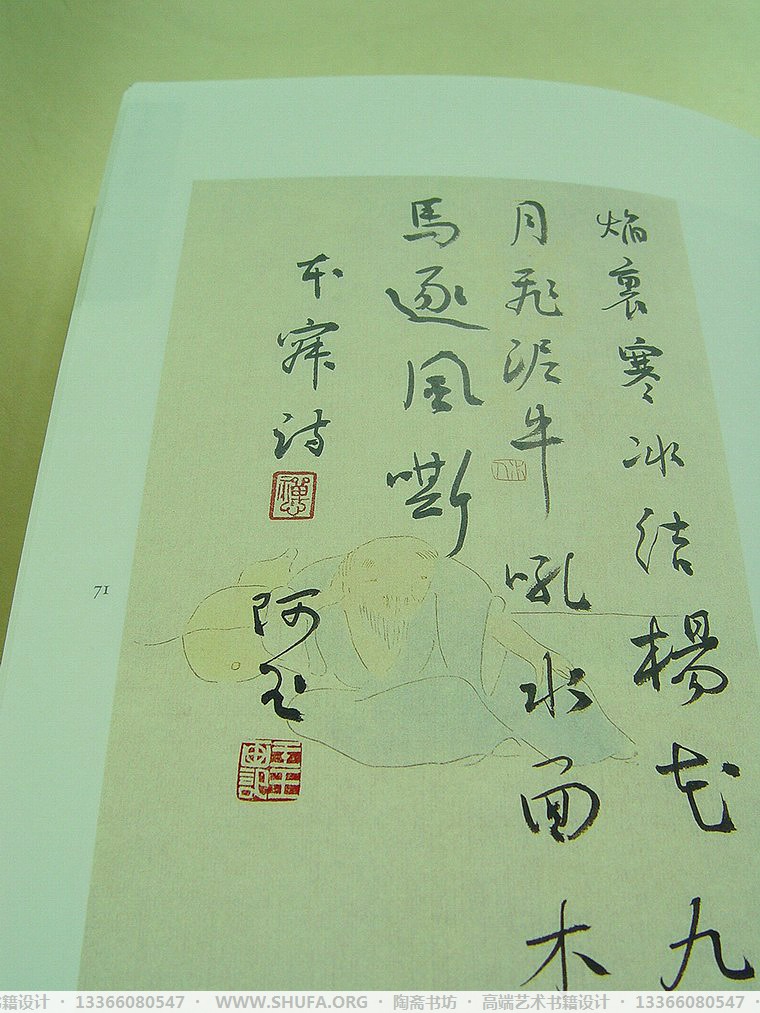 焰裏寒冰结楊花九
月飛泥牛吼水面木
馬逐風嘶
本寂诗
禪
阿
71
籍设计 · 13366080547 · WWW.SHUFA.ORG · 陶斋书坊 · 高端艺术书籍设计 · 13366080547 ·